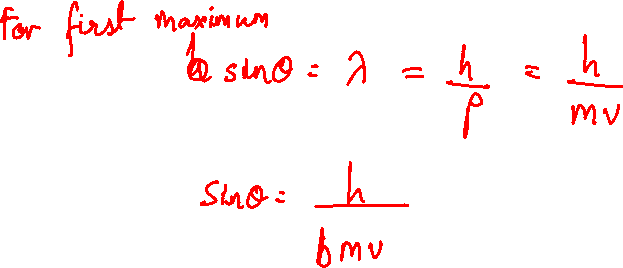 For first maximum
b sinθ = λ = h/p = h/mv
sinθ = h/bmv